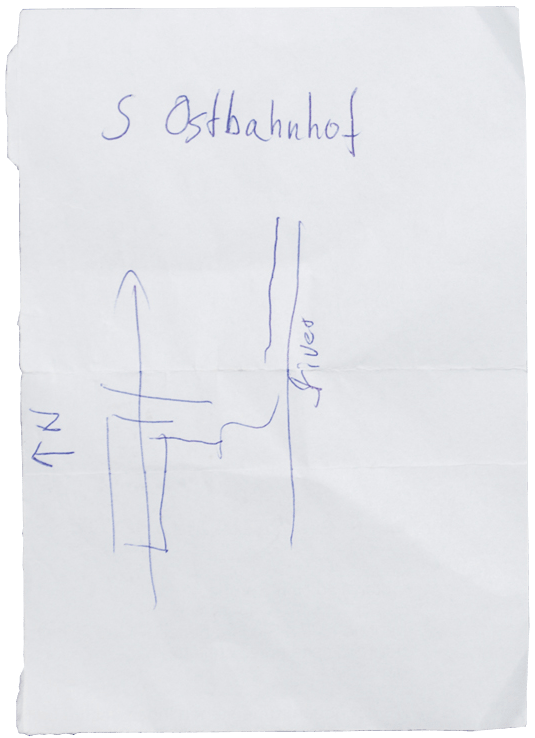 S Ostbahnhof
river
N